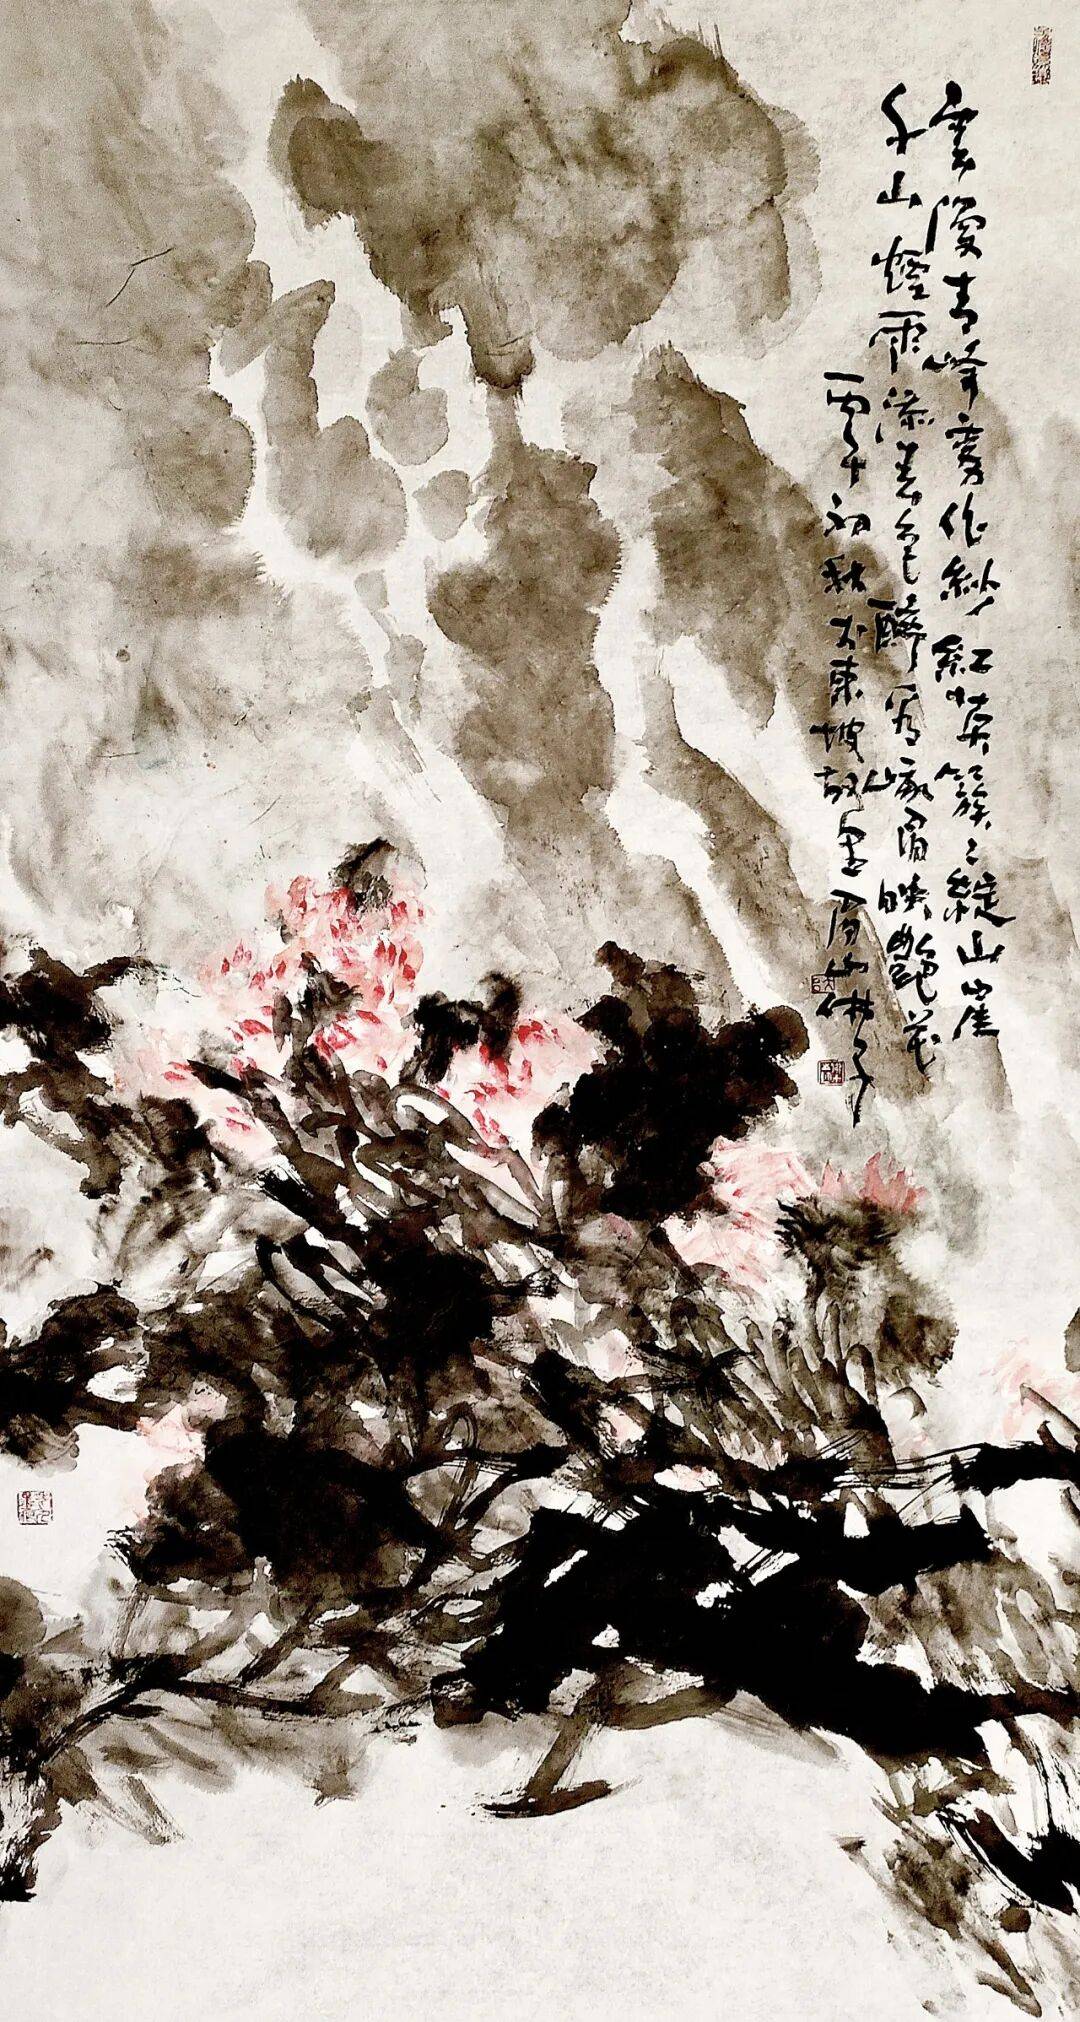 雲漫青峰霧作紗紅英簇々綻山崖
千山煙雨添春色醉看峨眉映艷花
丙午初秋於東坡故里眉山